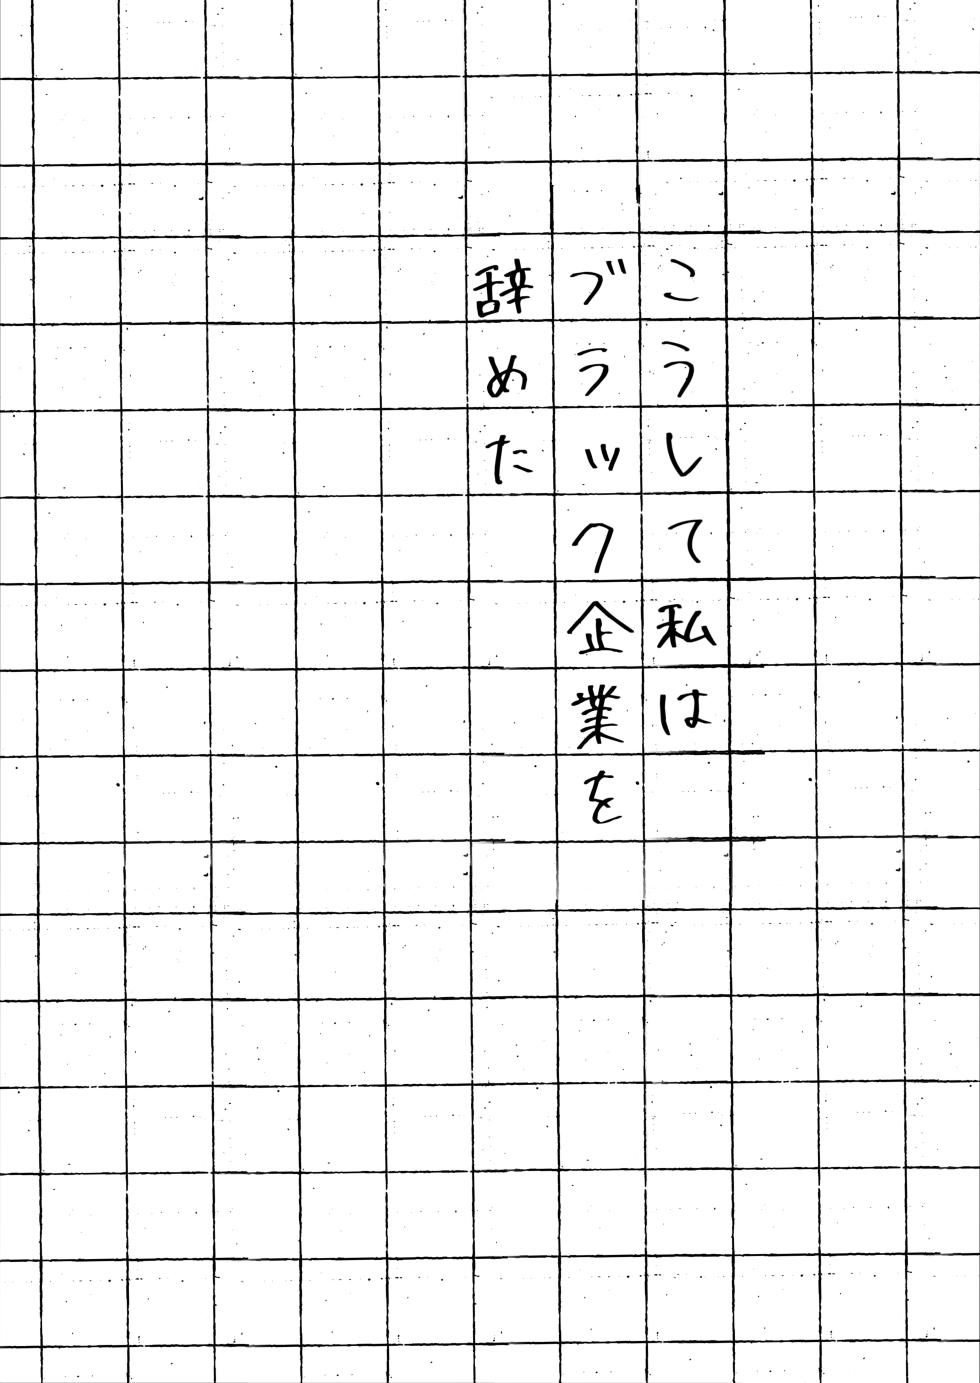 こうして私は
ブラック企業を
辞めた